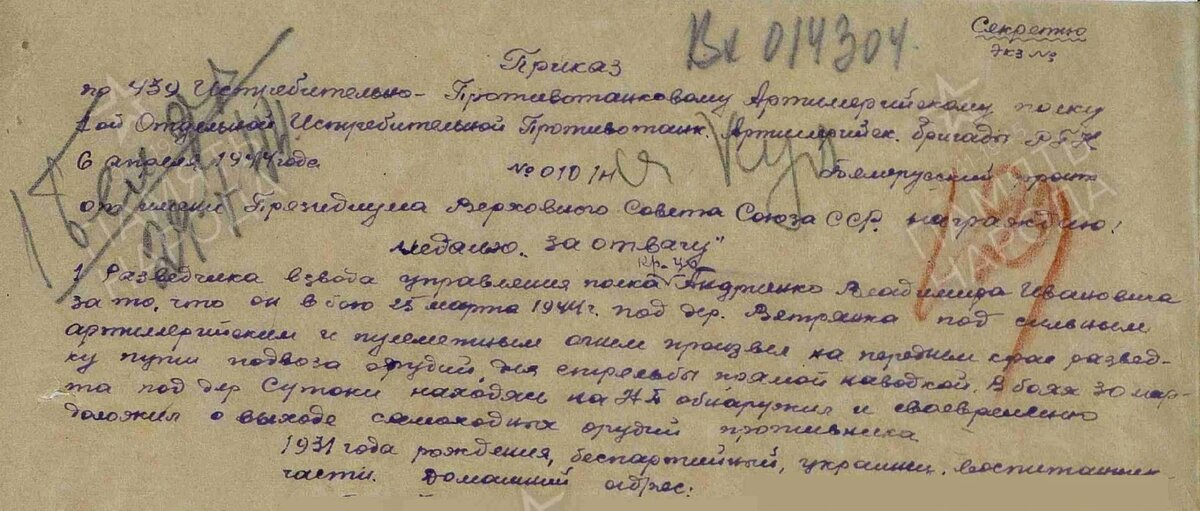 Секретно
Экз №
Вх 014304.
Приказ
по 439 Истребительно-Противотанковому Артиллерийскому полку
Отдельной Истребительной Противотанк. Артиллерийск. бригады РГК
6 апреля 1944 года № 010/н Белорусский фронт
от имени Президиума Верховного Совета Союза ССР награждаю:
медалью „за отвагу"
кр-ца
1 Разведчика взвода управления полка Андриенко Владимира Ивановича
за то, что он в бою 25 марта 1944 г. под дер. Ветрянка под сильным
артиллерийским и пулеметным огнем произвел на переднем крае развед-
ку пути подвоза орудий для стрельбы прямой наводкой. В боях 30 мар-
та под дер Сутоки находясь на НП обнаружил и своевременно
доложил о выходе самоходных орудий противника
1931 года рождения, беспартийный, украинец. воспитанник
части. Домашний адрес:
19
ПАМЯТЬ
НАРОДА